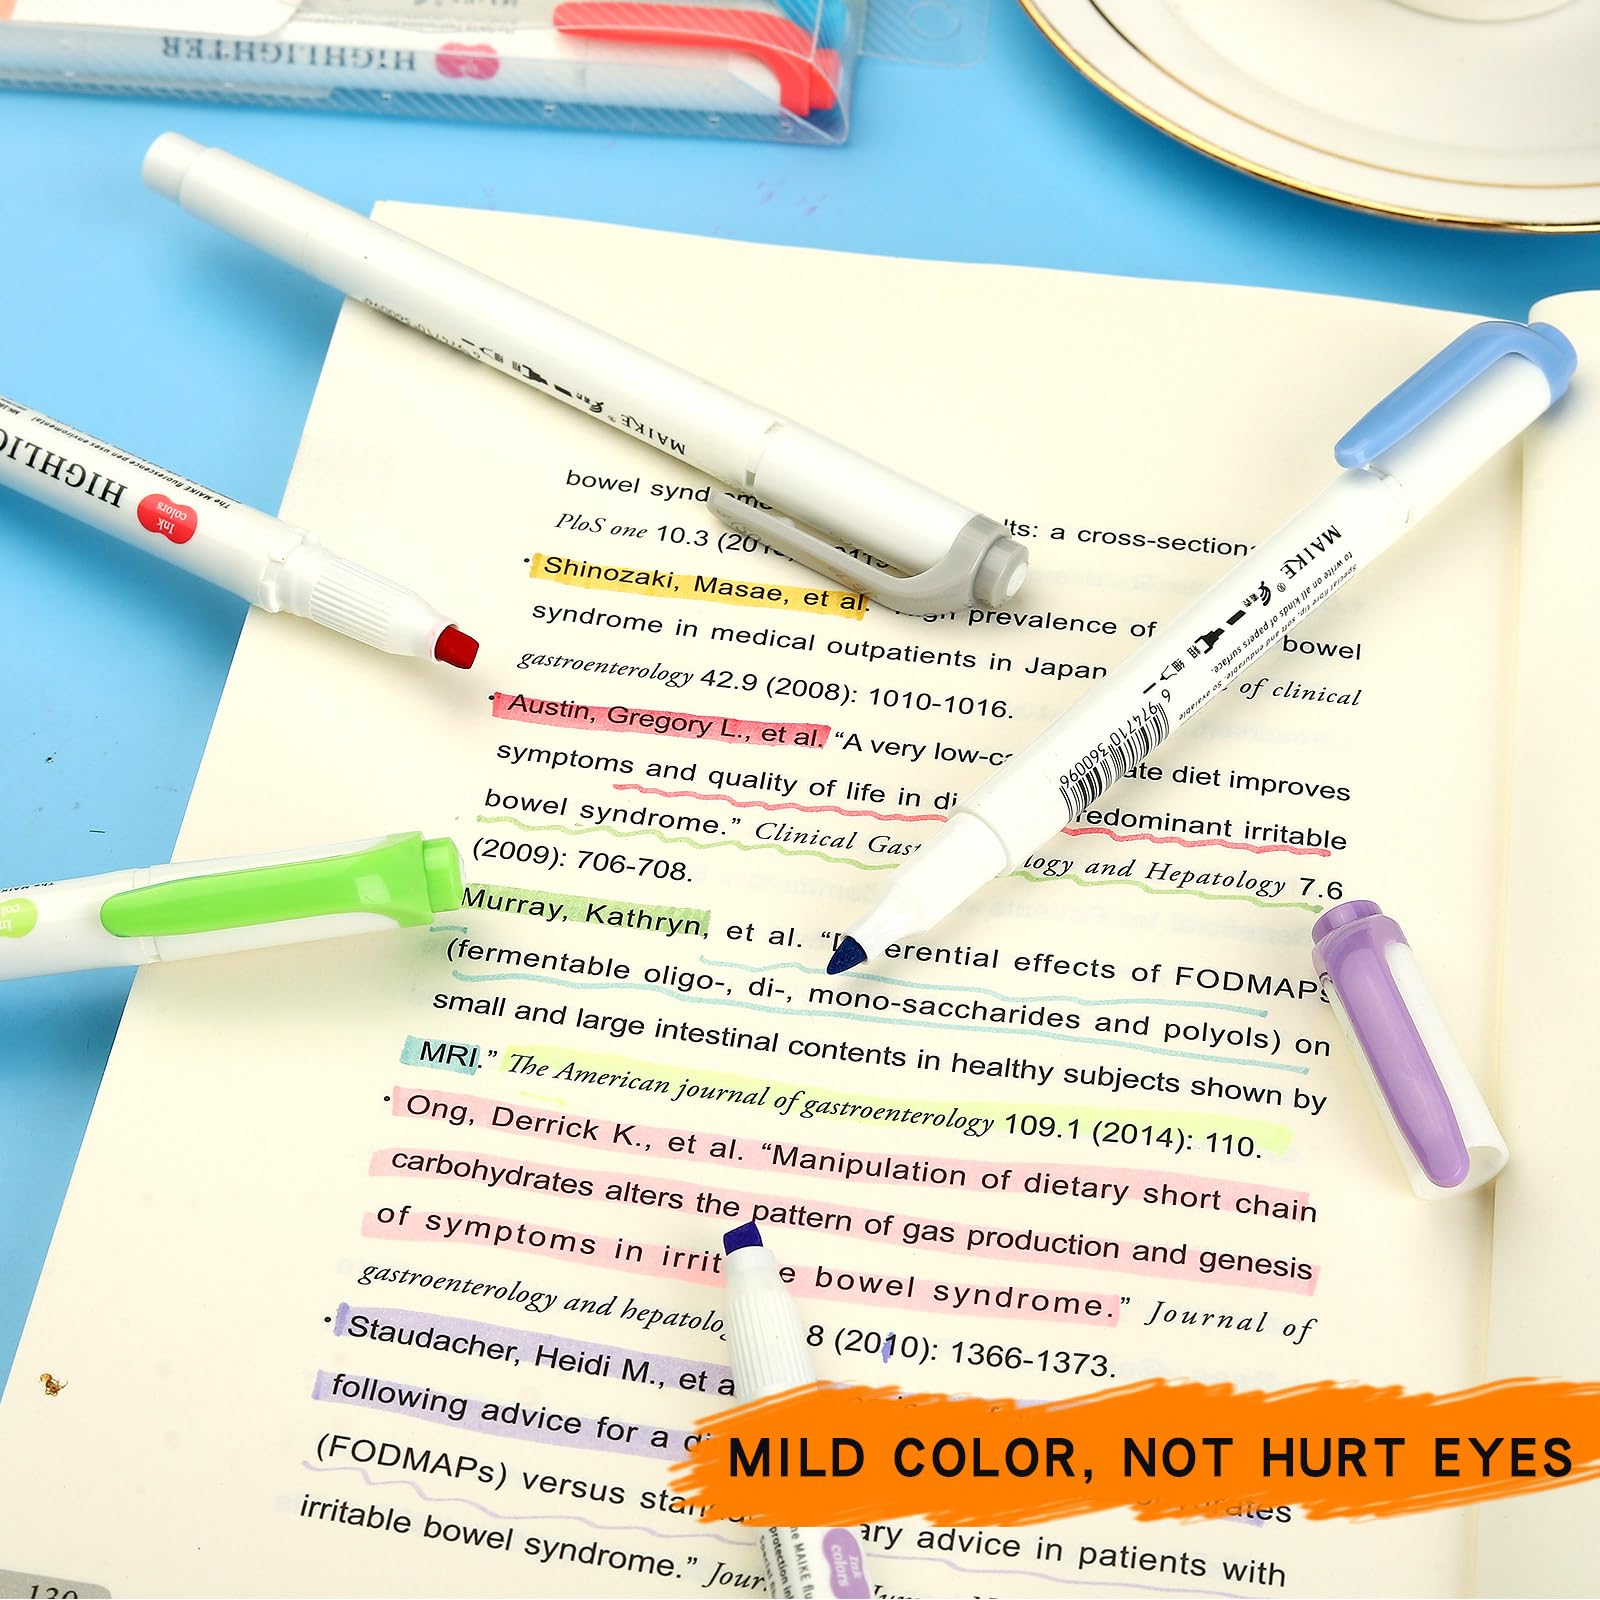 HIGHLIGHTER
MAIKE®
HIGHLIG
Ink
colors
The MAIKE fluorescence pen uses enviromental
MAIKE®
Special fibre tip, soft and endurable. So available
to write on all kinds of papers surface.
粗 细
6 974710 360096
bowel synd
lts: a cross-section
PloS one 10.3 (201
• Shinozaki, Masae, et al.
prevalence of
bowel
syndrome in medical outpatients in Japan
of clinical
gastroenterology 42.9 (2008): 1010-1016.
• Austin, Gregory L., et al. “A very low-ca
ate diet improves
symptoms and quality of life in di
redominant irritable
bowel syndrome.” Clinical Gas
logy and Hepatology 7.6
(2009): 706-708.
Murray, Kathryn, et al. “D
erential effects of FODMAPs
(fermentable oligo-, di-, mono-saccharides and polyols) on
small and large intestinal contents in healthy subjects shown by
MRI.” The American journal of gastroenterology 109.1 (2014): 110.
• Ong, Derrick K., et al. “Manipulation of dietary short chain
carbohydrates alters the pattern of gas production and genesis
of symptoms in irrit
e bowel syndrome.” Journal of
gastroenterology and hepatolog
8 (2010): 1366-1373.
• Staudacher, Heidi M., et a
following advice for a d
MILD COLOR, NOT HURT EYES
(FODMAPs) versus stan
ary advice in patients with
irritable bowel syndrome.” Jour
Ink
colors
130